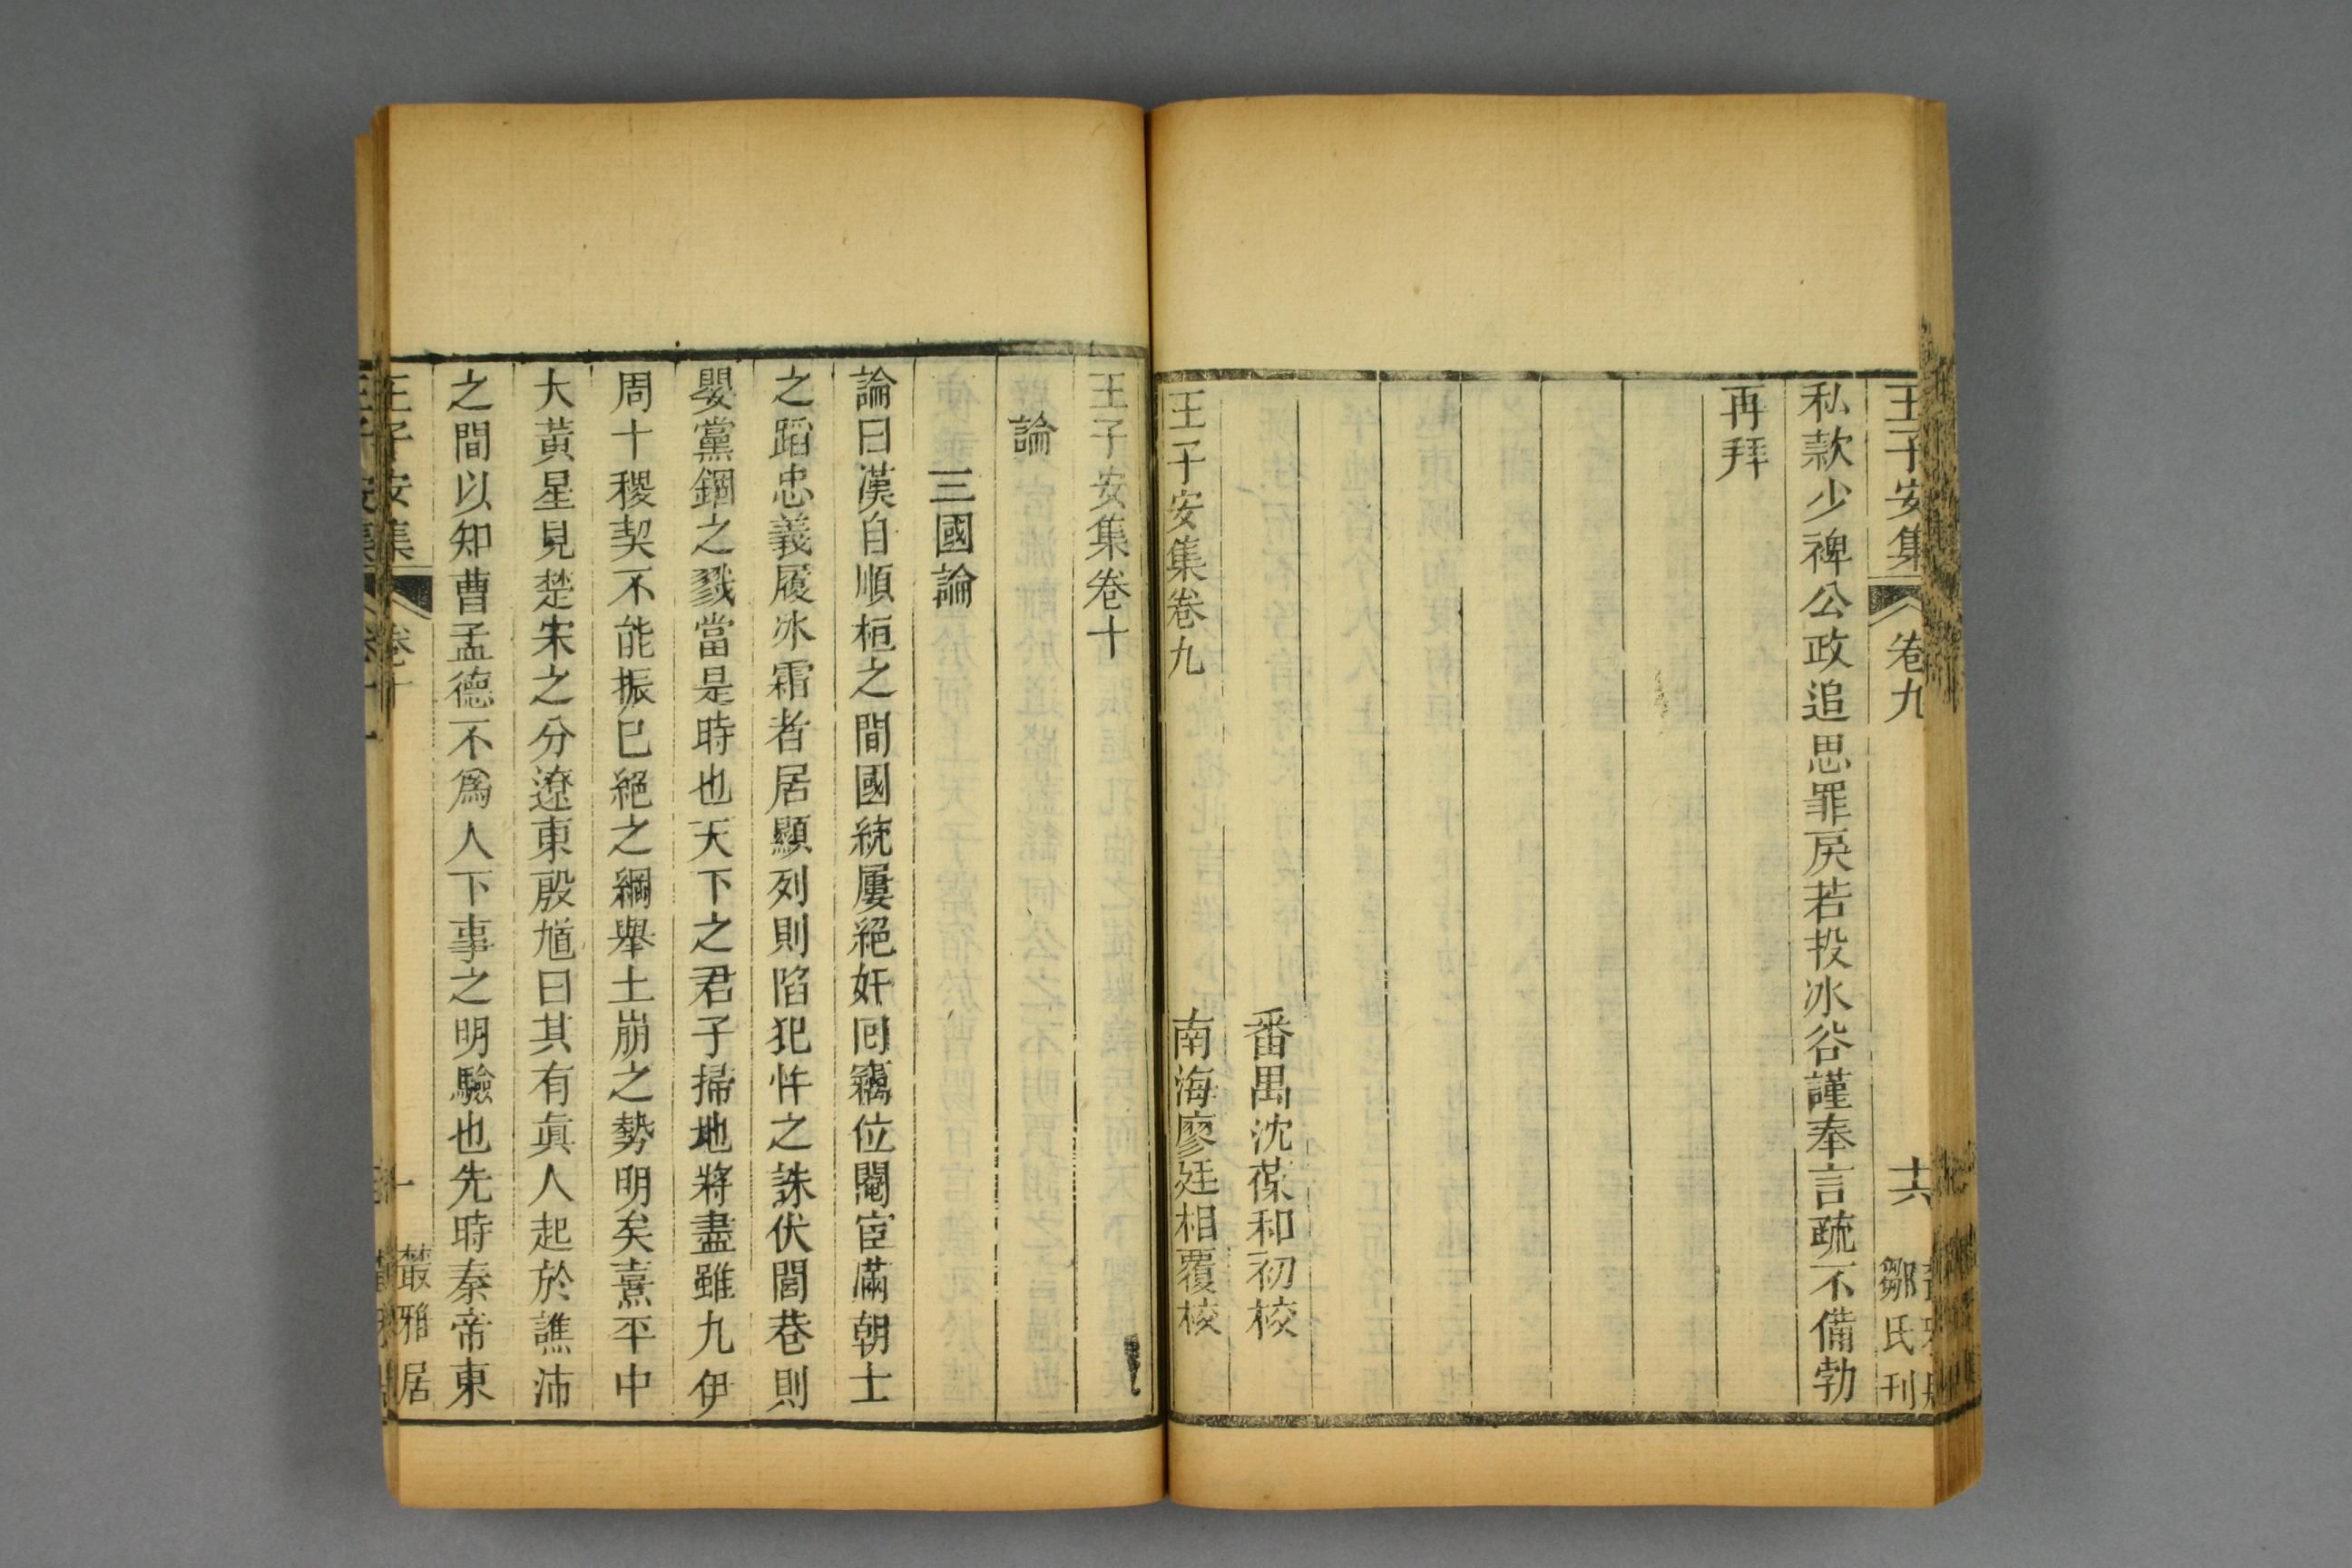 王子安集 卷九 十六 鄒氏刊
私款少裨公政追思罪戾若投冰谷謹奉言疏不備勃
再拜
番禺沈葆和初校
王子安集卷九 南海廖廷相覆校
王子安集卷十
論
三國論
論曰漢自順桓之間國統屢絕奸回竊位閹宦滿朝士
之蹈忠義履冰霜者居顯列則陷犯忤之誅伏閭巷則
嬰黨錮之戮當是時也天下之君子掃地將盡雖九伊
周十稷契不能振已絕之綱舉土崩之勢明矣熹平中
大黃星見楚宋之分遼東殷馗曰其有眞人起於譙沛
之間以知曹孟德不爲人下事之明驗也先時秦帝東
王子安集 卷十 一 叢雅居